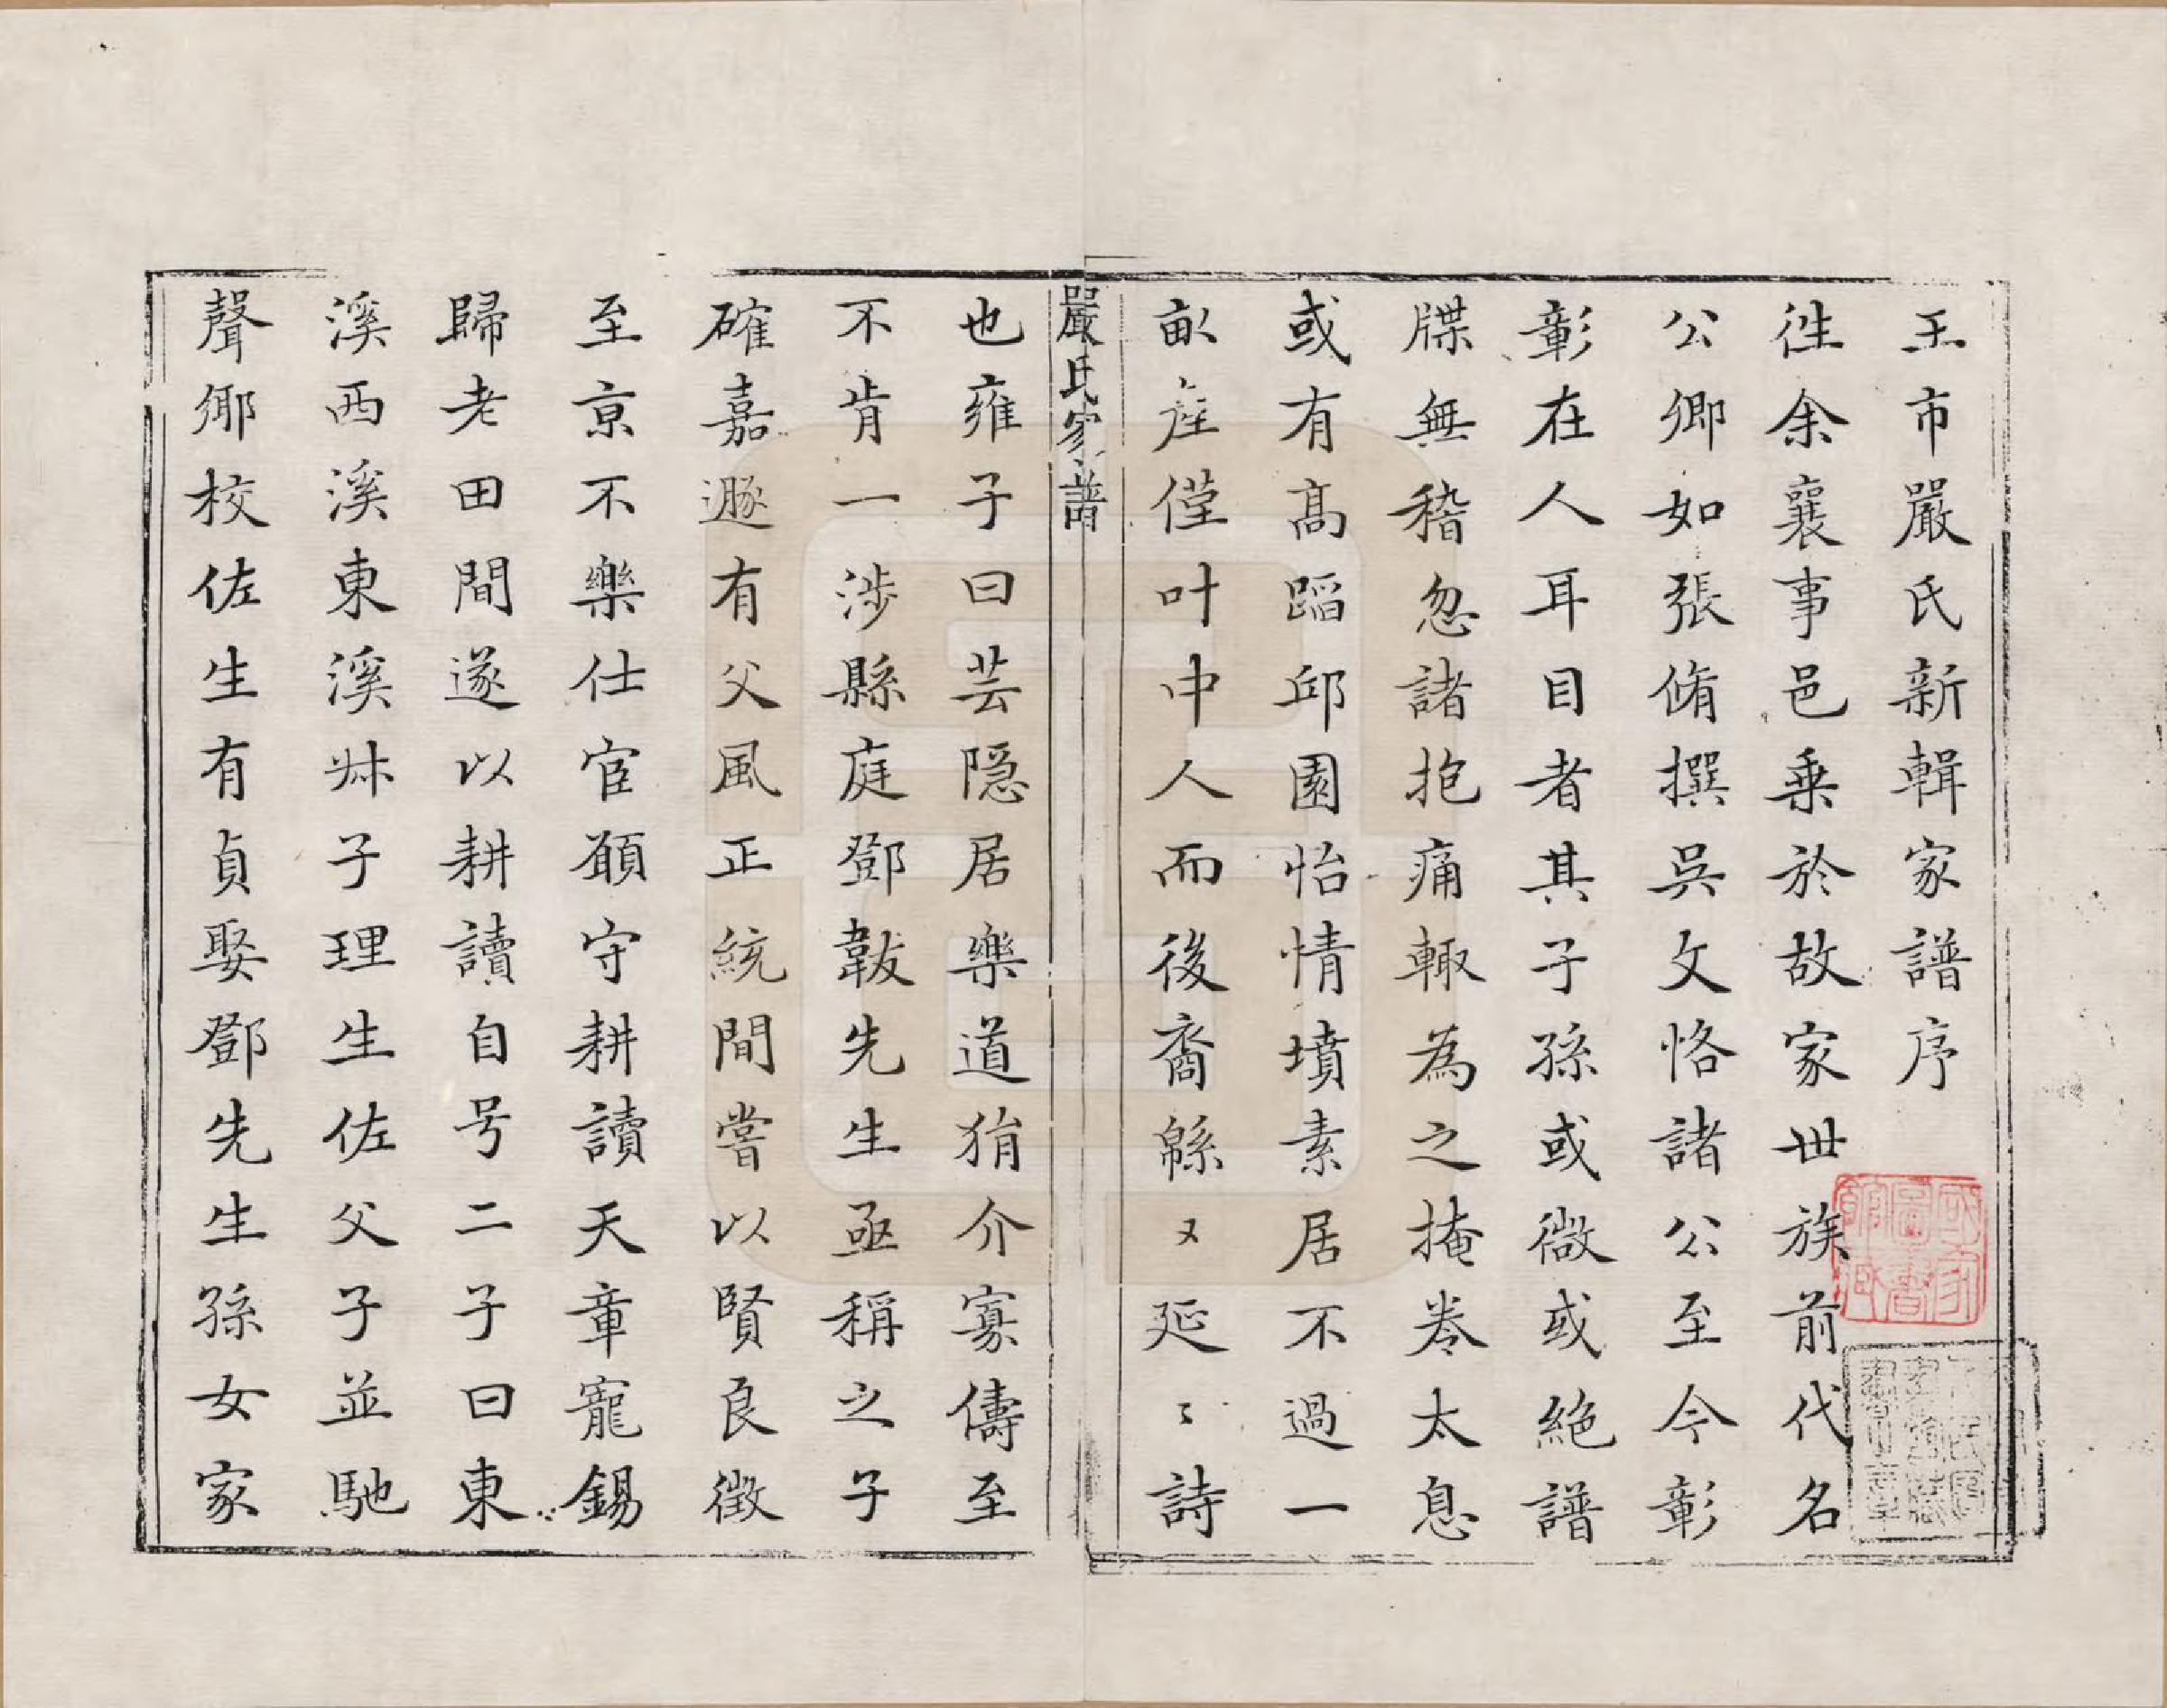 王市嚴氏新輯家譜序
徃余襄事邑乗於故家世族前代名
公卿如張脩撰吳文恪諸公至今彰
彰在人耳目者其子孫或微或絶譜
牒無稽忽諸抱痛輙為之掩卷太息
或有髙蹈邱園怡情墳素居不過一
畝産僅叶中人而後裔緜〻延〻詩
嚴氏家譜
也雍子曰芸隠居樂道狷介寡儔至
不肯一涉縣庭鄧韍先生亟稱之子
確嘉遯有父風正統間嘗以賢良徴
至京不樂仕宦願守耕讀天章寵錫
歸老田間遂以耕讀自号二子曰東
溪西溪東溪妹子理生佐父子並馳
聲鄉校佐生有貞娶鄧先生孫女家
國家圖書館藏